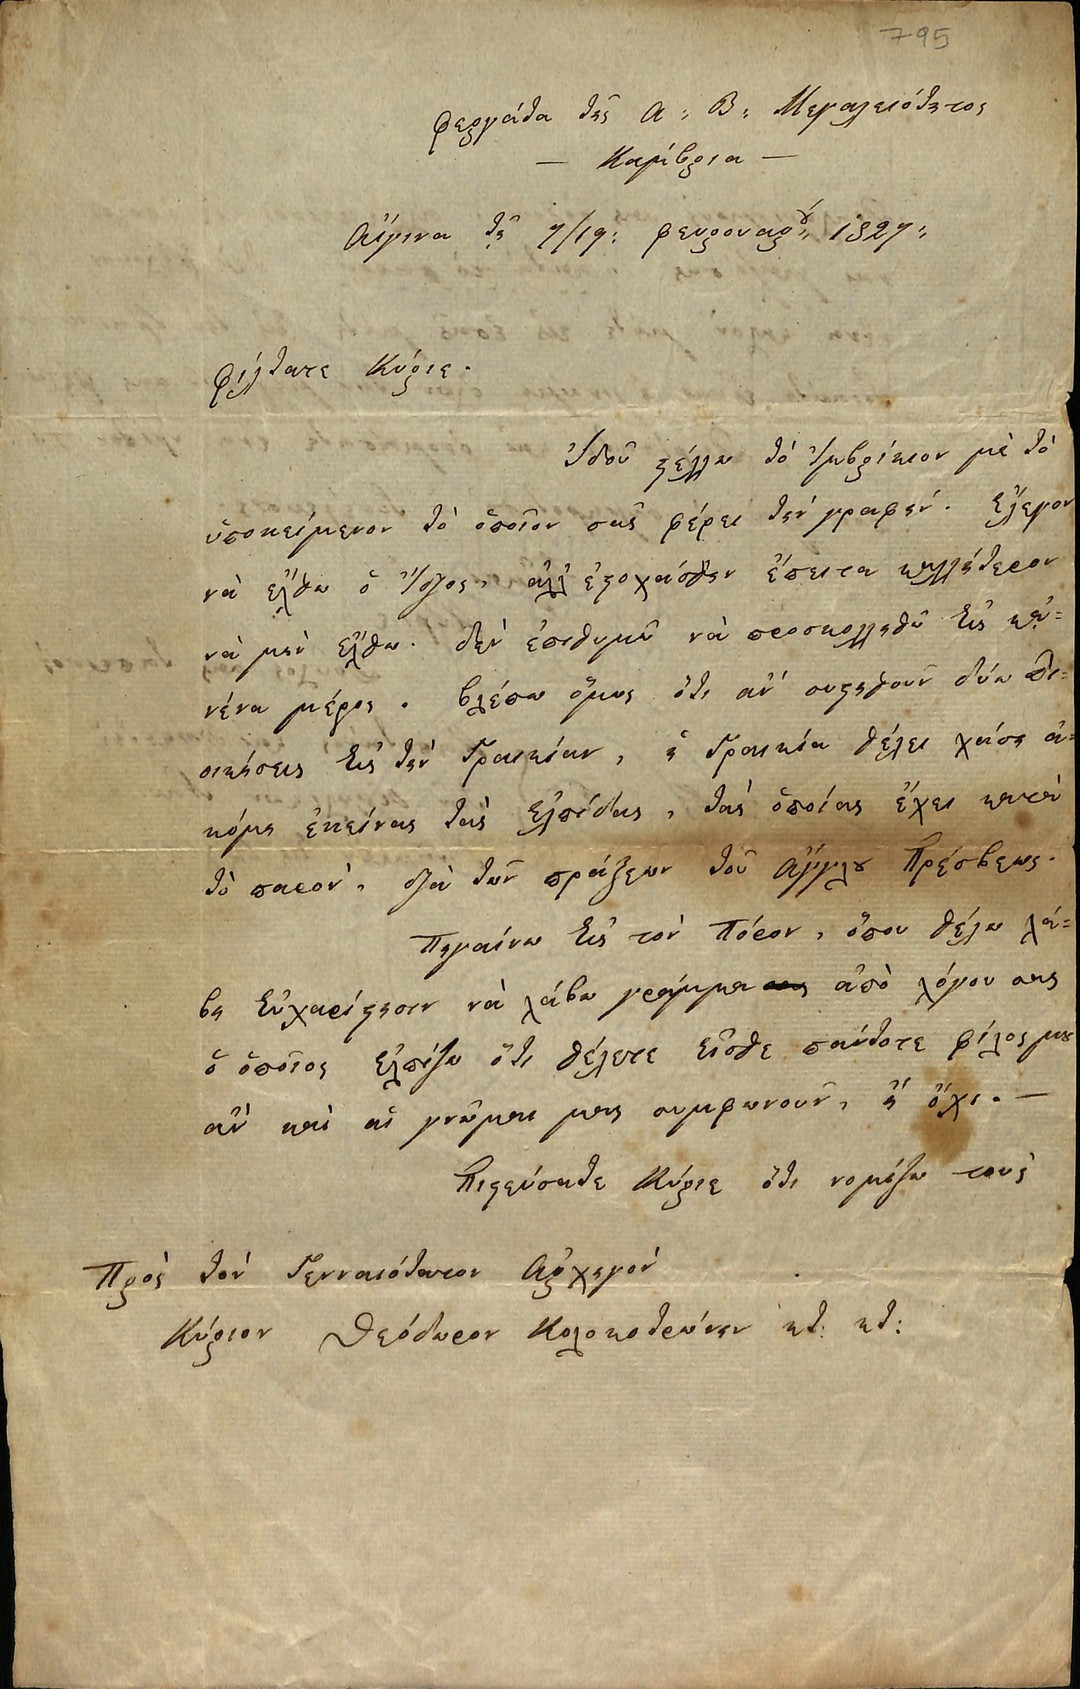 795
Φεργάδα τῆς Α: Β: Μεγαλειότητος
— Καμβρία —
Αἴγινα τῇ 7/19: Φευρουαρίου 1827:
Φίλτατε Κύριε.
Ἰδοὺ στέλλω τὸ Ἰμβρίκιον μὲ τὸ
ὑποκείμενον τὸ ὁποῖον σᾶς φέρει τὴν γραφήν. Ἔλεγον
νὰ ἔλθω ὁ ἴδιος, ἀλλ' ἐστοχάσθην ἔπειτα καλλήτερον
νὰ μὴν ἔλθω. δὲν ἐπιθυμῶ νὰ προσκολληθῶ εἰς κᾀ=
νένα μέρος. βλέπω ὅμως ὅτι ἂν συστηθοῦν δύω Δι=
οικήσεις εἰς τὴν Γραικίαν, ἡ Γραικία θέλει χάσῃ ἀ=
κόμη ἐκείνας τὰς ἐλπίδας, τὰς ὁποίας ἔχει κατὰ
τὸ παρὸν, διὰ τῶν πράξεων τοῦ Ἄγγλου Πρέσβεως.
Πηγαίνω εἰς τὸν Πόρον, ὅπου θέλω λά=
βῃ εὐχαρίστησιν νὰ λάβω γράμμα ἀπὸ λόγου σας
ὁ ὁποῖος ἐλπίζω ὅτι θέλετε εἶσθε πάντοτε φίλος μου
ἂν καὶ αἱ γνῶμαι μας συμφωνοῦν, ἢ ὄχι. —
Πιστεύσατε Κύριε ὅτι νομίζω τοὺς
Πρὸς τὸν Γενναιότατον Ἀρχηγὸν
Κύριον Θεόδωρον Κολοκοτρώνην κτ: κτ: